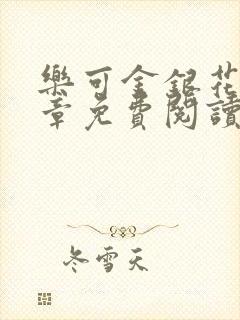 樂可金銀花
章免費閱讀
冬雪天